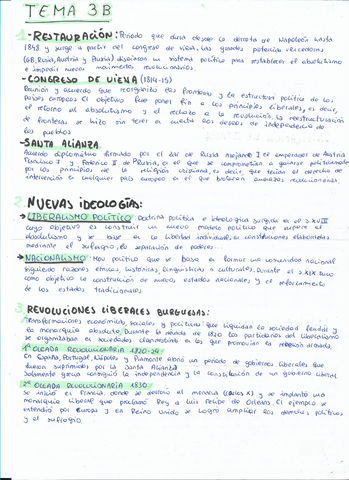 TEMA 3B
1-RESTAURACIÓN: Período que dura desde la derrota de Napoleón hasta
1848 y surge a partir del congreso de Viena. Las grandes potencias vencedoras
(GB, Rusia, Austria y Prusia) diseñaron un sistema político para restablecer el absolutismo
e impedir nuevos movimientos revolucionarios.
-CONGRESO DE VIENA (1814-15)
Reunión y acuerdo que reorganizó las fronteras y la estructura política de los
países europeos. El objetivo fue poner fin a los principios liberales, es decir,
el retorno al absolutismo y el rechazo a la revolución, la reestructuración
de fronteras se hizo sin tener en cuenta los deseos de independencia de
los pueblos.
-SANTA ALIANZA
Acuerdo diplomático firmado por el zar de Rusia Alejandro I el emperador de Austria
Francisco I y Federico II de Prusia, en el que se comprometían a guiarse políticamente
por los principios de la religión cristiana, es decir, que tenían el derecho de
intervención en cualquier país europeo en el que hubieran amenazas revolucionarias.
2. NUEVAS IDEOLOGÍAS:
→LIBERALISMO POLÍTICO: Doctrina política e ideológica surgida en el S XVIII
cuyo objetivo es construir un nuevo modelo político que supere el
absolutismo y se base en la libertad individual, en constituciones elaboradas
mediante el sufragio, la separación de poderes.
→NACIONALISMO: Mov político que se basa en formar una comunidad nacional
siguiendo razones étnicas, históricas, lingüísticas o culturales. Durante el s.XIX tuvo
como objetivo la construcción de nuevos estados nacionales, y el reforzamiento
de los estados tradicionales.
3. REVOLUCIONES LIBERALES BURGUESAS:
Transformaciones económicas, sociales y políticas que liquidan la sociedad feudal y
la monarquía absoluta. Durante la década de 1820 los partidarios del liberalismo
se organizaban en sociedades clandestinas en las que promovían la rebelión armada.
1ª OLEADA REVOLUCIONARIA 1820-24
En España, Portugal, Nápoles y Piamonte abrió un período de gobiernos liberales que
fueron suprimidos por la Santa Alianza
Solamente Grecia consiguió la independencia y la constitución de un gobierno liberal
2ª OLEADA REVOLUCIONARIA 1830
Se inició en Francia, donde se destronó al monarca (Carlos X) y se implantó una
monarquía liberal que proclamó Rey a Luis Felipe de Orleans. El ejemplo se
extendió por Europa y en Reino Unido se logró ampliar los derechos políticos
y el sufragio.